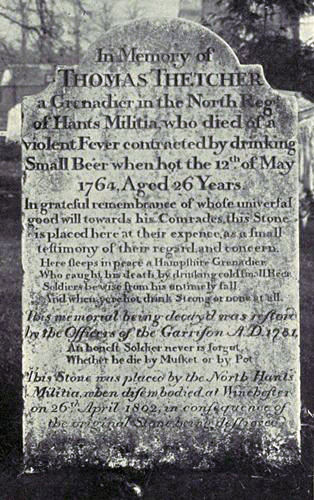 In Memory of
THOMAS THETCHER
a Grenadier in the North Reg.
of Hants Militia, who died of a
violent Fever contracted by drinking
Small Beer when hot the 12th of May
1764, Aged 26 Years.
In grateful remembrance of whose universal
good will towards his Comrades, this Stone
is placed here at their expence, as a small
testimony of their regard and concern.
Here sleeps in peace a Hampshire Grenadier,
Who caught his death by drinking cold small Beer,
Soldiers be wise from his untimely fall
And when ye're hot drink Strong or none at all.
This memorial being decay'd was restor'd
by the Officers of the Garrison A.D. 1781,
An honest Soldier never is forgot,
Whether he die by Musket or by Pot.
This Stone was placed by the North Hants
Militia, when disembodied at Winchester
on 26th April 1802, in consequence of
the original Stone being destroyed